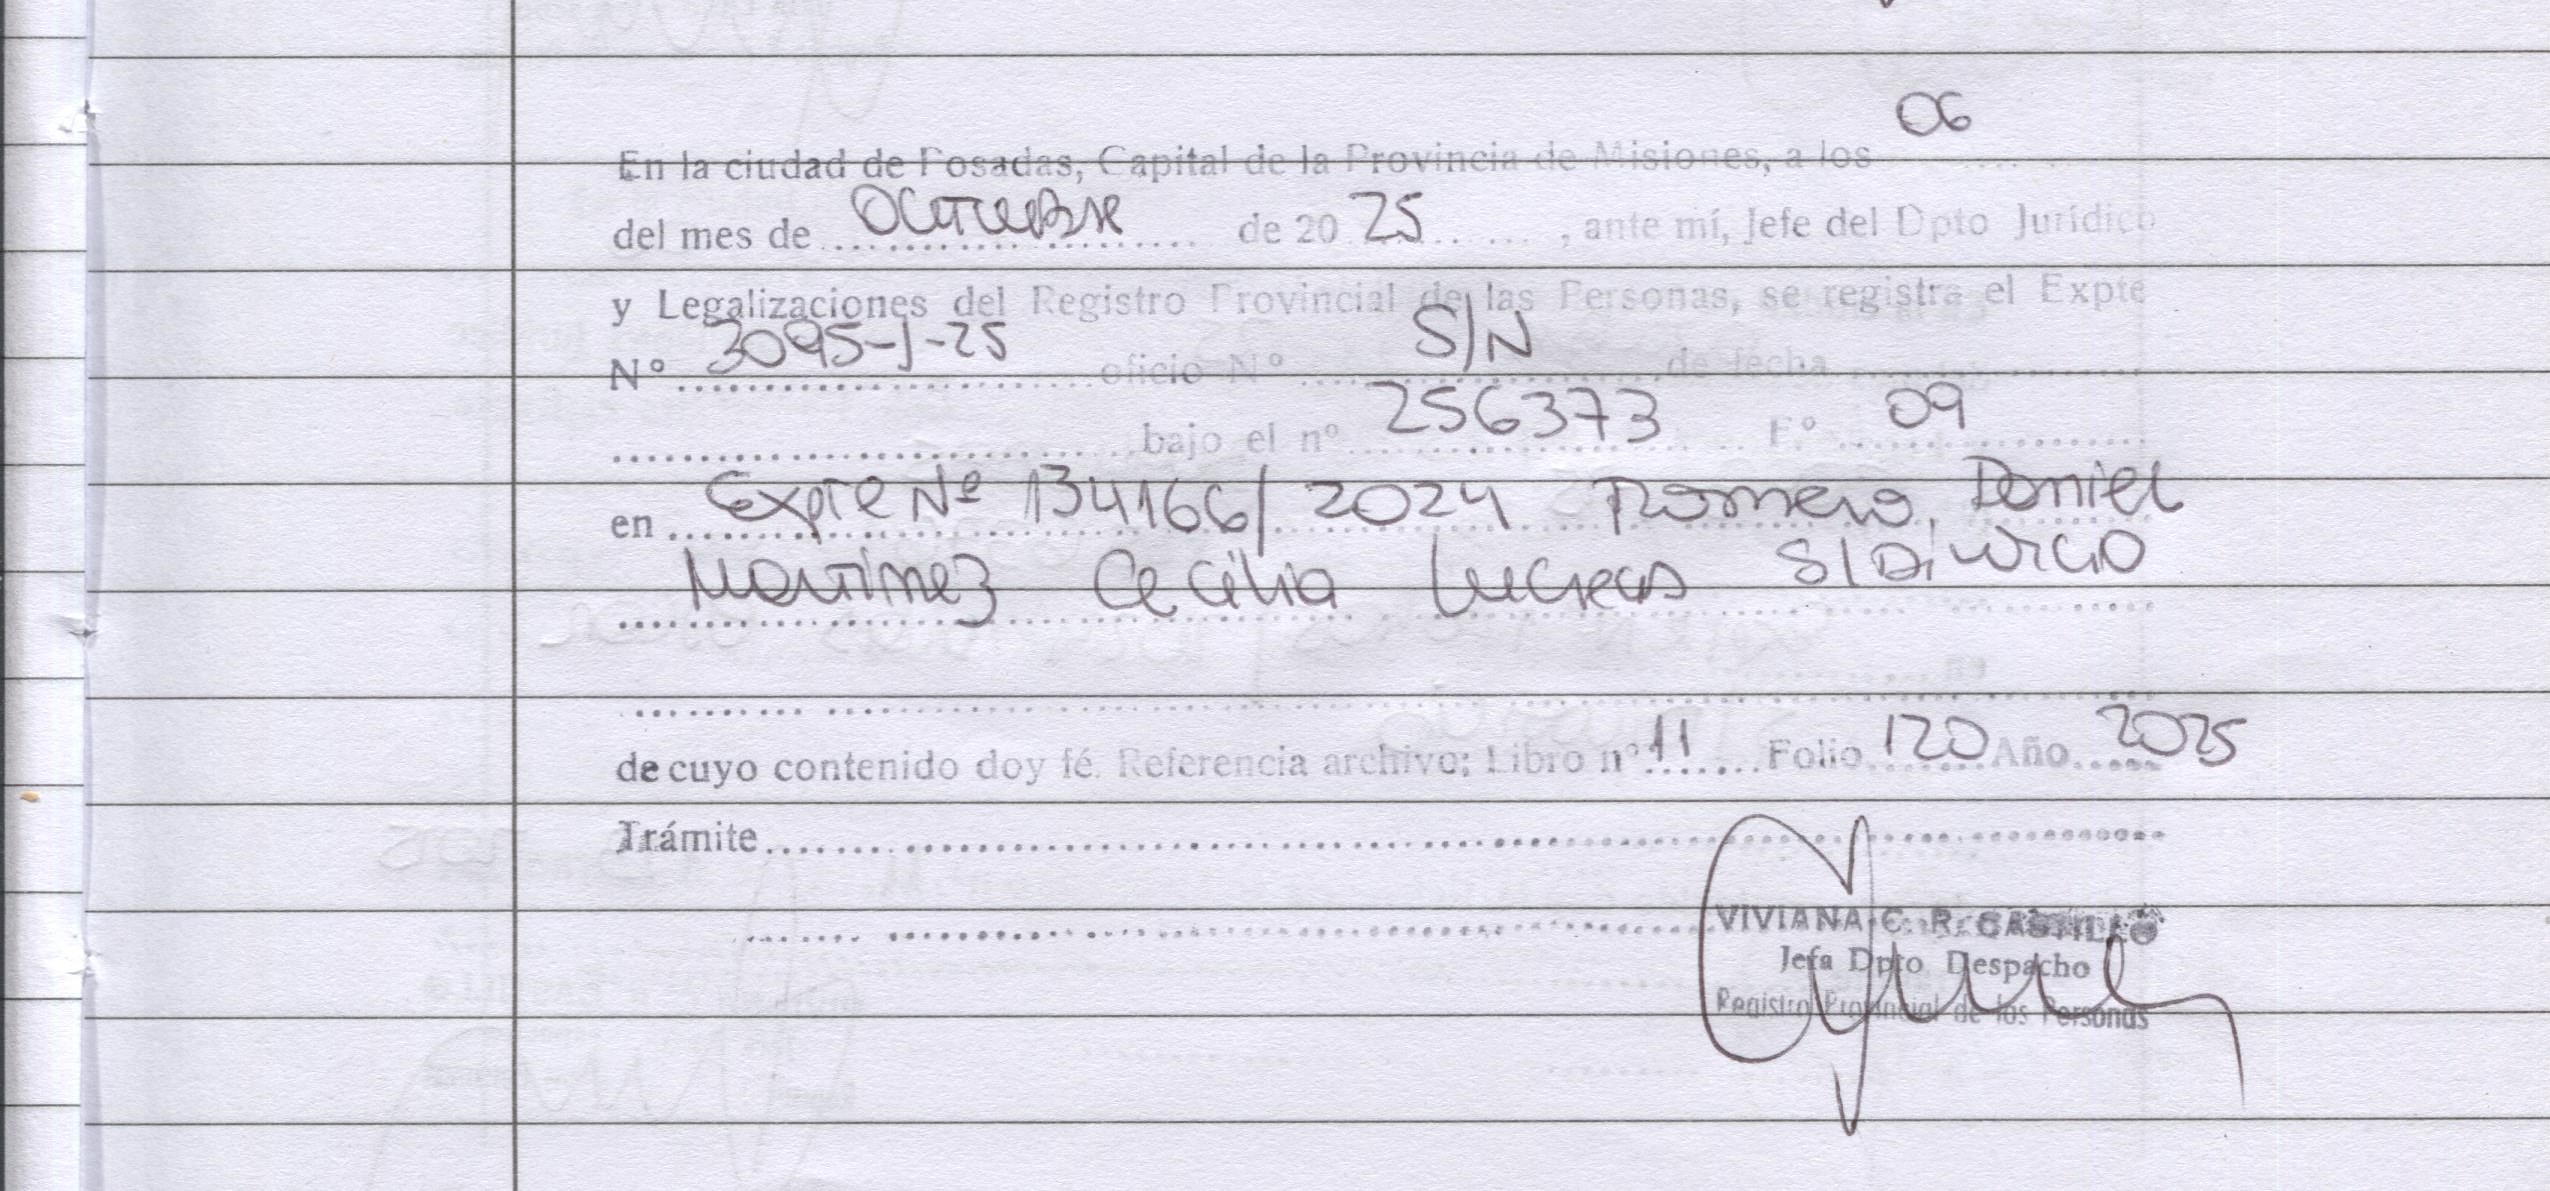 06
En la ciudad de Posadas, Capital de la Provincia de Misiones, a los
del mes de Octubre de 20 25, ante mí, Jefe del Dpto Jurídico
y Legalizaciones del Registro Provincial de las Personas, se registra el Expte
Nº 3095-J-25 oficio Nº S/N de fecha
bajo el nº 256373 Fº 09
en Expte Nº 134166/2024 Romero, Daniel
Martinez Cecilia S/Divorcio
de cuyo contenido doy fé. Referencia archivo; Libro nº 11 Folio 120 Año 2025
Trámite
VIVIANA C. R. CASTILLO
Jefa Dpto Despacho
Registro Provincial de las Personas